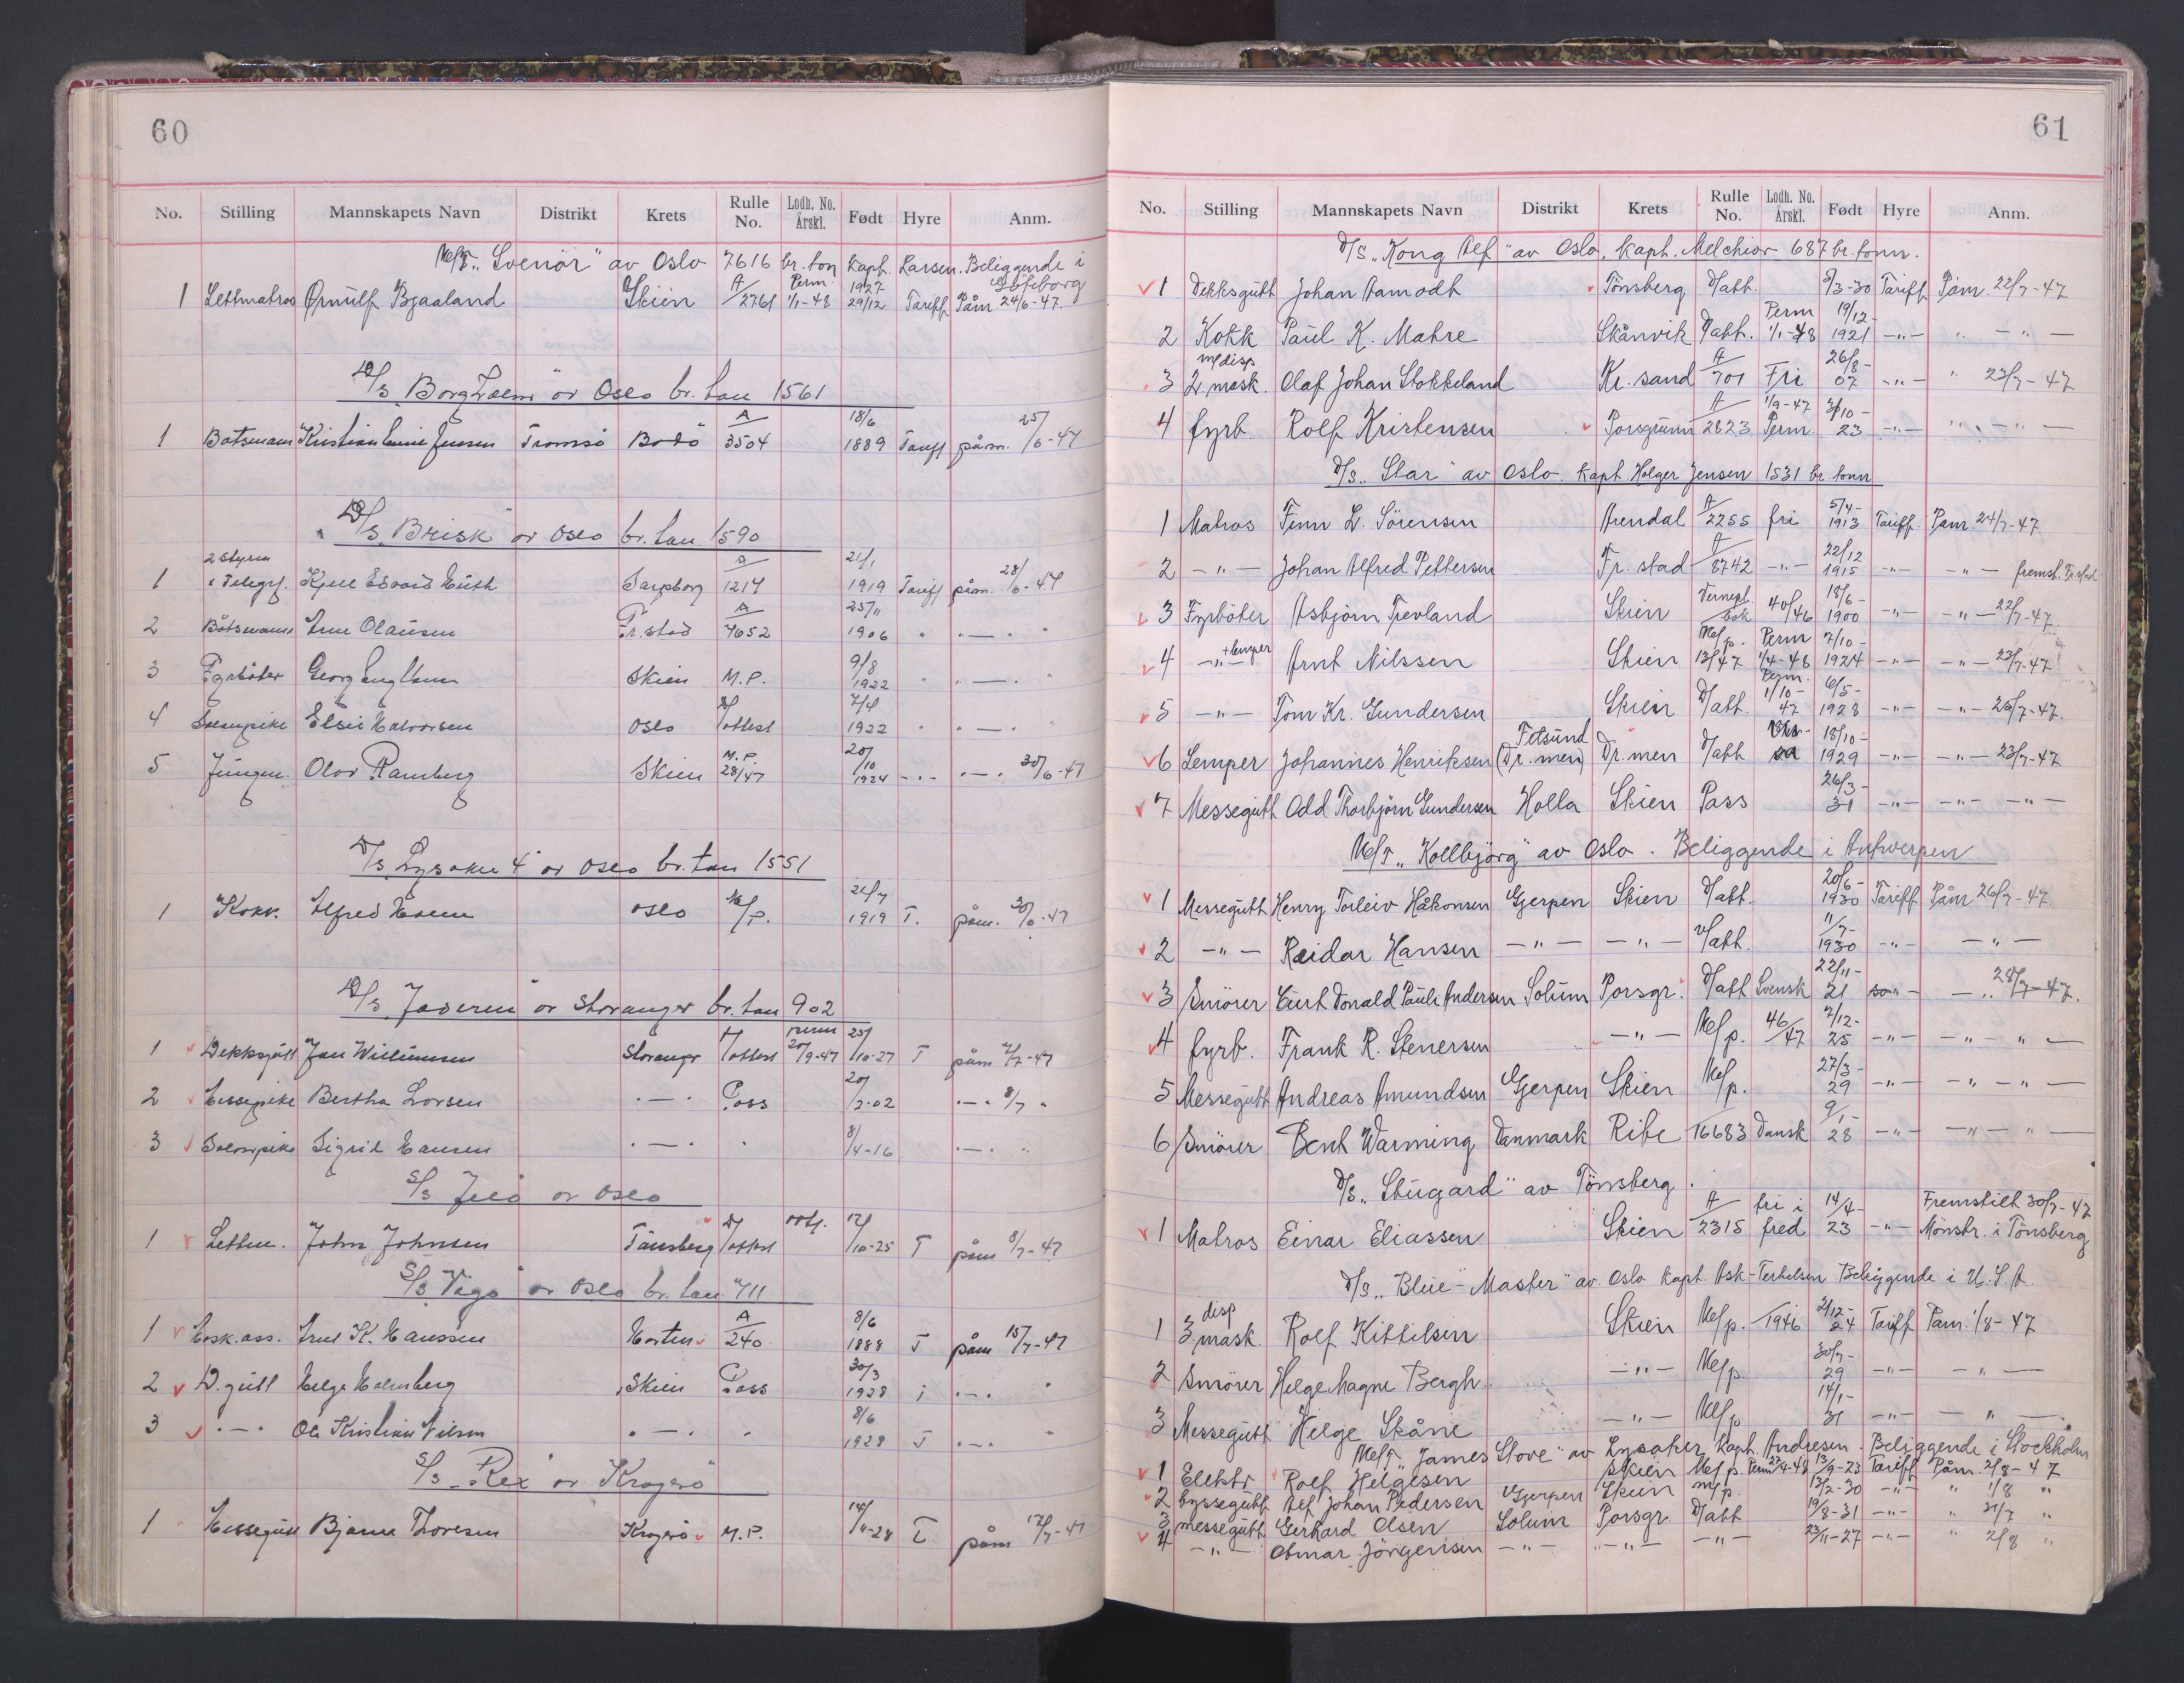 60
No. Stilling Mannskapets Navn Distrikt Krets Rulle No. Lodh. No. Årskl. Født Hyre Anm.
M/T. „Svenör" av Oslo 7616 br. ton Kapt. Larsen. Beliggende i Göteborg
1 Lettmatros Ørnulf Bjaaland Skien A/2761 Perm 1/1-48 1927 29/12 Tariff Påm 24/6-47.
D/S „Borgholm" av Oslo br. tau 1561
1 Båtsmann Kristian Jensen Tromsö Bodö A/3504 18/6 1889 Tariff påm. 25/6-47
D/S „Brisk" av Oslo br. tau 1590
1 2 styrm & Telegrf. Kjell Edvard Sarpsborg A/1217 21/1 1919 Tariff påm. 28/6-47
2 Båtsmann Olausen Fr.stad A/7652 25/11 1906 " " — " "
3 Fyrböter Georg Skien M.P. 9/8 1922 " " — " "
4 Elsie Halvorsen Oslo D/attest 7/4 1922 " " — "
5 Jungm. Olav Ramberg Skien M.P. 28/47 20/10 1924 - " - " — " 30/6-47
D/S „Lysaker 4" av Oslo br. tau 1551
1 Kokk. Alfred Oslo M/P. 21/7 1919 T. påm. 30/6-47
D/S „Jaderen" av Stavanger br. tau 902
1 Dekksgutt Jan Willumsen Stavanger D/attest perm 20/9-47 25/10-27 T påm 2/7-47
2 Messepike Bertha Larsen " — " Pass 20/2-02 " — " 8/7 "
3 Sigrid Hansen " — " " 8/4-16 " — " "
S/S „Jelö" av Oslo
1 Lettm. John Johnsen Tönsberg D/attest 12/10-25 T påm 8/7-47
S/S „Vigo" av Oslo br. tau 711
1 Mask.ass. K. Hanssen Horten A/240 8/6 1888 T påm 15/7-47
2 D.gutt Helge Holmberg Skien Pass 30/3 1928 " — " "
3 " — " Ole Kristian Nilsen " — " " 8/6 1929 T " — " "
S/S „Rex" av Kragerö
1 Messegutt Bjarne Thoresen Kragerö M.P. 14/4-28 T påm 17/7-47
61
No. Stilling Mannskapets Navn Distrikt Krets Rulle No. Lodh. No. Årskl. Født Hyre Anm.
D/S „Kong Alf" av Oslo, Kapt. Melchior 687 br. tonn.
1 Dekksgutt Johan Aamodt Tönsberg D/att. 8/3-30 Tariff Påm. 22/7-47
2 Kokk Paul K. Mahre Skånvik D/att. Perm 1/1-48 19/12-1921 -"- " - " —
3 m/disp 2. mask. Olaf Johan Stokkeland Kr. sand A/701 Fri 26/8-07 -"- " 23/7-47
4 fyrb. Rolf Kristensen Porsgrunn A/2823 1/9-47 Perm. 31/10-23 -"- " - " —
D/S „Star" av Oslo. Kapt. Holger Jensen 1531 br. tonn
1 Matros Finn L. Sörensen Arendal A/2255 fri 5/4-1913 Tariff Påm. 24/7-47
2 -"- Johan Alfred Pettersen Fr.stad A/8742 -"- 22/12 1915 -"- -"- fremst. Fr.stad
3 Fyrböter Asbjörn Trevland Skien Vernepl. bok 40/46 18/6-1900 -"- -"- 22/7-47.
4 -"- + lemper Arnt Nilssen Skien M/p. 13/47 Perm 1/4-48 7/10-1924 -"- -"- 23/7-47
5 -"- Tom Kr. Gundersen Skien D/att. Perm. 1/10-47 6/5-1928 -"- -"- 25/7-47.
6 Lemper Johannes Henriksen Fetsund (Dr.men) Dr.men D/att 18/10-1929 -"- -"- 23/7-47
7 Messegutt Odd Thorbjörn Gundersen Holla Skien Pass 26/3-31 -"- -"- -"-
M/T. „Kollbjörg" av Oslo. Beliggende i Antwerpen
1 Messegutt Henry Torleiv Håkonsen Gjerpen Skien D/att. 20/6-1930 Tariff Påm 26/7-47.
2 -"- Reidar Hansen -"- -"- D/att. 11/7-1930 -"- -"-
3 Smörer Curt Donald Pauli Andersen Solum Porsgr. D/att Svensk 22/11-21 -"- -"- 28/7-47.
4 fyrb. Frank R. Stenersen -"- M/p. 46/47 7/12-25 -"- -"- " —
5 Messegutt Andreas Amundsen Gjerpen Skien M/p. 27/3-29 -"- -"- " —
6 Smörer Bent Warming Danmark Ribe 16683 Dansk 9/1-28 -"- -"- " —
D/S „Stugard" av Tönsberg.
1 Matros Einar Eliassen Skien A/2315 fri i fred 14/4-23 -"- Fremstilt 30/7-47 Mönstr. i Tönsberg
D/S „Blue-Master" av Oslo Kapt. Ask-Terkelsen Beliggende i U.S.A.
1 disp 3.mask. Rolf Kittilsen Skien M/p. /1946 2/12-24 Tariff Påm. 1/8-47
2 Smörer Helge Magne Bergh -"- M/p. 30/7-29 -"- -"-
3 Messegutt Helge Skåne -"- M/p 14/1-31 -"- -"-
M/T. „James Stove" av Lysaker Kapt. Andresen - Beliggende i Stockholm
1 Elektr Rolf Helgesen Skien M/p. Perm 27/4-48 13/9-23 Tariff Påm. 2/8-47
2 byssegutt Alf Johan Pedersen Gjerpen Skien M/p. 13/2-30 -"- " 1/8 "
3 messegutt Gerhard Olsen Solum Porsgr D/att 19/8-31 -"- " 31/7 "
4 -"- Osmar Jörgensen -"- -"- -"- 23/11-27 -"- " 2/8 "